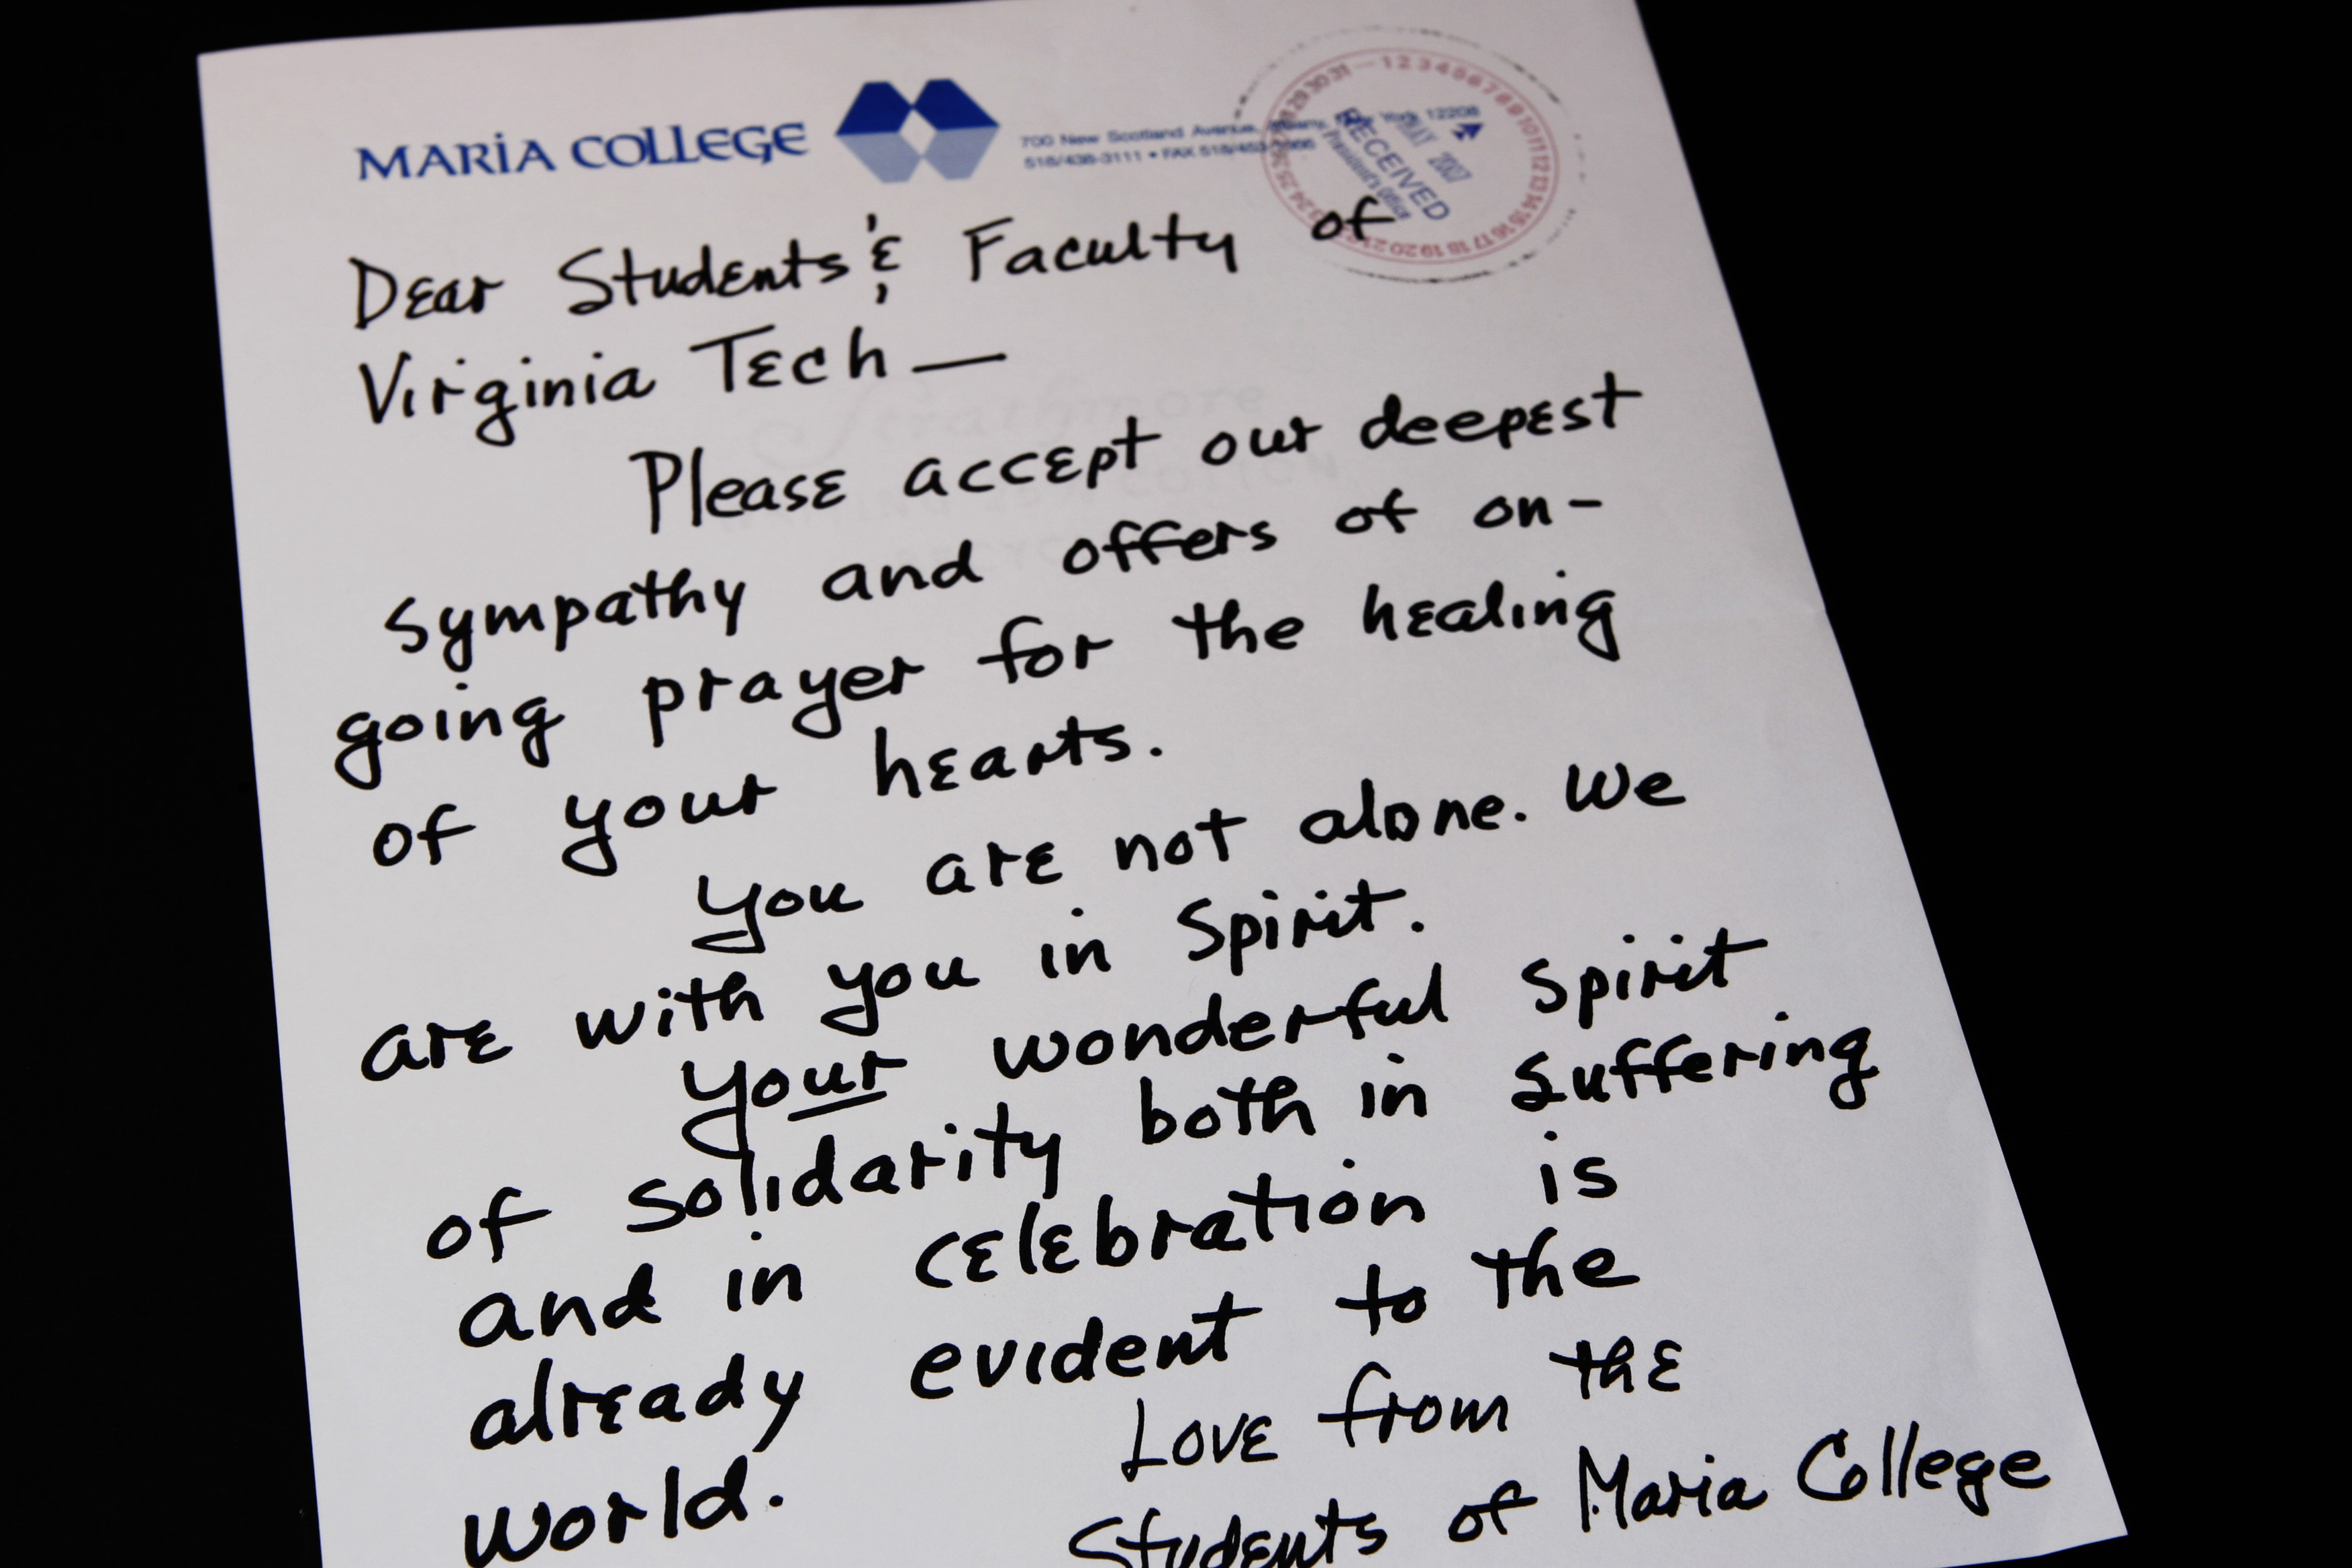 MARIA COLLEGE
700 New Scotland Avenue, Albany, New York 12208
518/438-3111 • FAX 518/453-1366
RECEIVED
MAY 2007
President's Office
1 2 3 4 5 6 7 8 9 10 11 12 13 14 15 16 17 18 19 20 21 22 23 24 25 26 27 28 29 30 31
Dear Students & Faculty of
Virginia Tech —
Strathmore
Please accept our deepest
sympathy and offers of on-
going prayer for the healing
of your hearts.
You are not alone. We
are with you in Spirit.
Your wonderful spirit
of solidarity both in suffering
and in celebration is
already evident to the
world.
Love from the
Students of Maria College